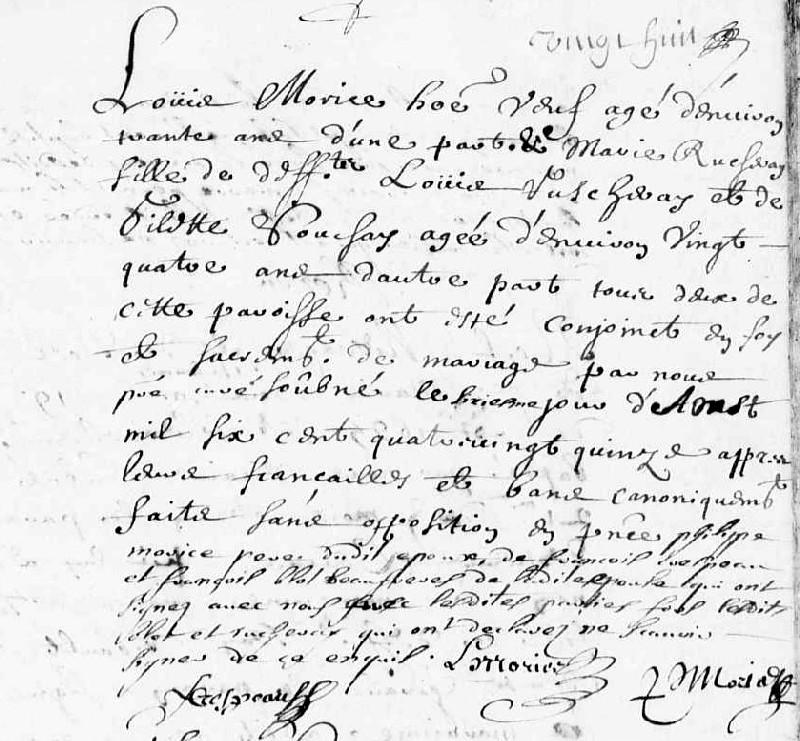 vingt huit
Loüis Morice hoe veuf agé d'enuiron
trante ans d'une part. & Marie Rucheuay
fille de deff.ter Loüis Ruscheuay et de
Tilette Souchay agée d'enuiron vingt
quatre ans d'autre part tous deux de
cette paroisse ont esté conjoincts en foy
et sacremt. de mariage par nous
pre curé soubné le jour d'Aoust
mil six cent quatreuingt quinze appres
leurs fiançailles et bans canoniquemt
faits sans opposition en pnce philippe
morice pere dudit epoux, de françois
et françois Blot beaufreres de ladite epouse qui ont
signez avec nous lesdites parties fors lesdits
Blot et rucheuais qui ont declarez ne scauoir
signer de ce enquis. L Morice
P Morice